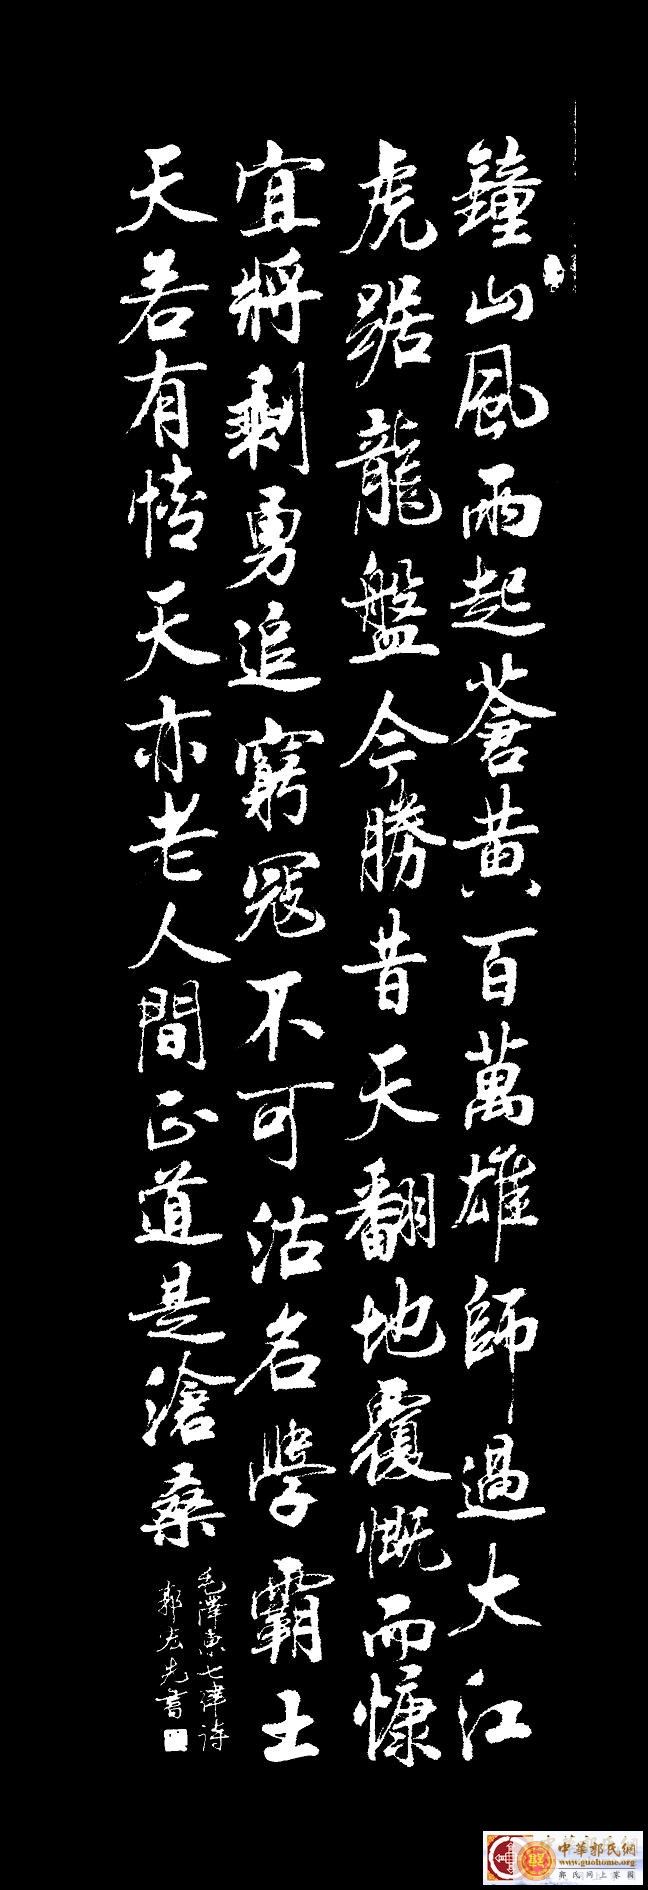 鐘山風雨起蒼黄百萬雄師過大江
虎踞龍盤今勝昔天翻地覆慨而慷
宜將剩勇追窮寇不可沽名學霸王
天若有情天亦老人間正道是滄桑
毛澤東七律詩
郭先書
中華郭氏網
www.guohome.org
郭氏网上家園